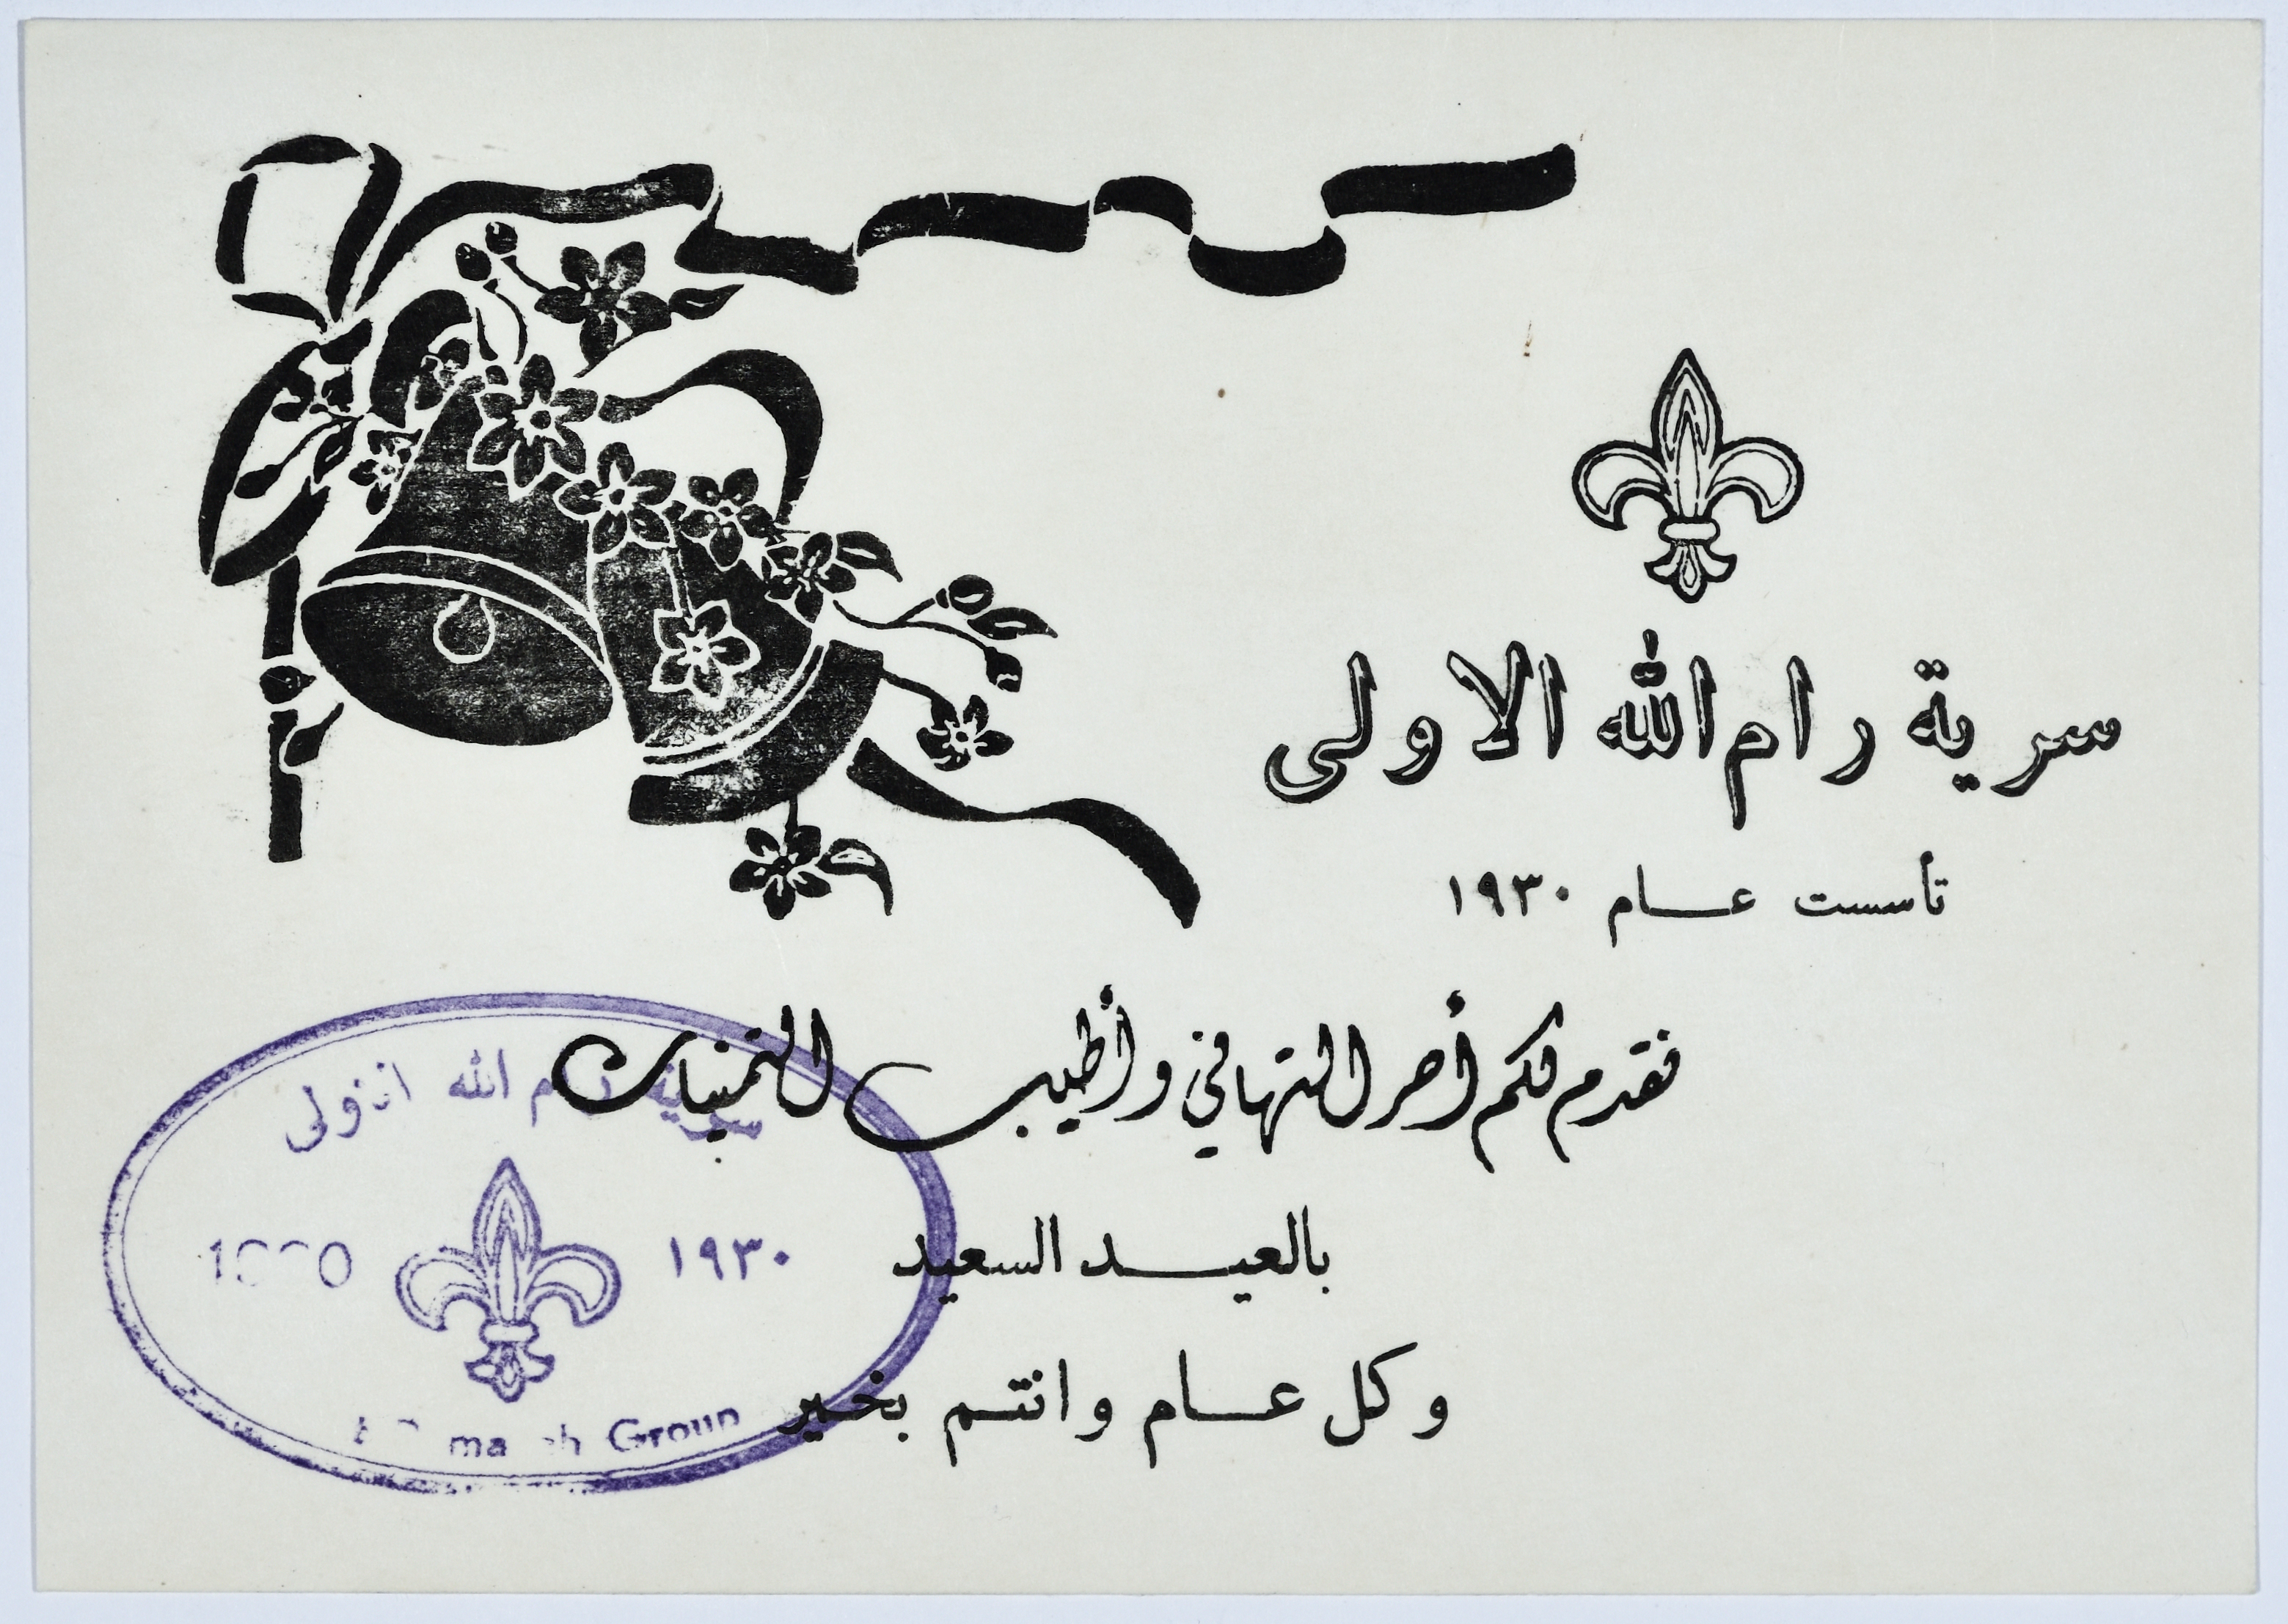 سرية رام الله الاولى
تأسست عام ١٩٣٠
نقدم لكم أحر التهاني وأطيب التمنيات
بالعيد السعيد
وكل عام وانتم بخير
سرية رام الله الاولى
١٩٣٠
Group